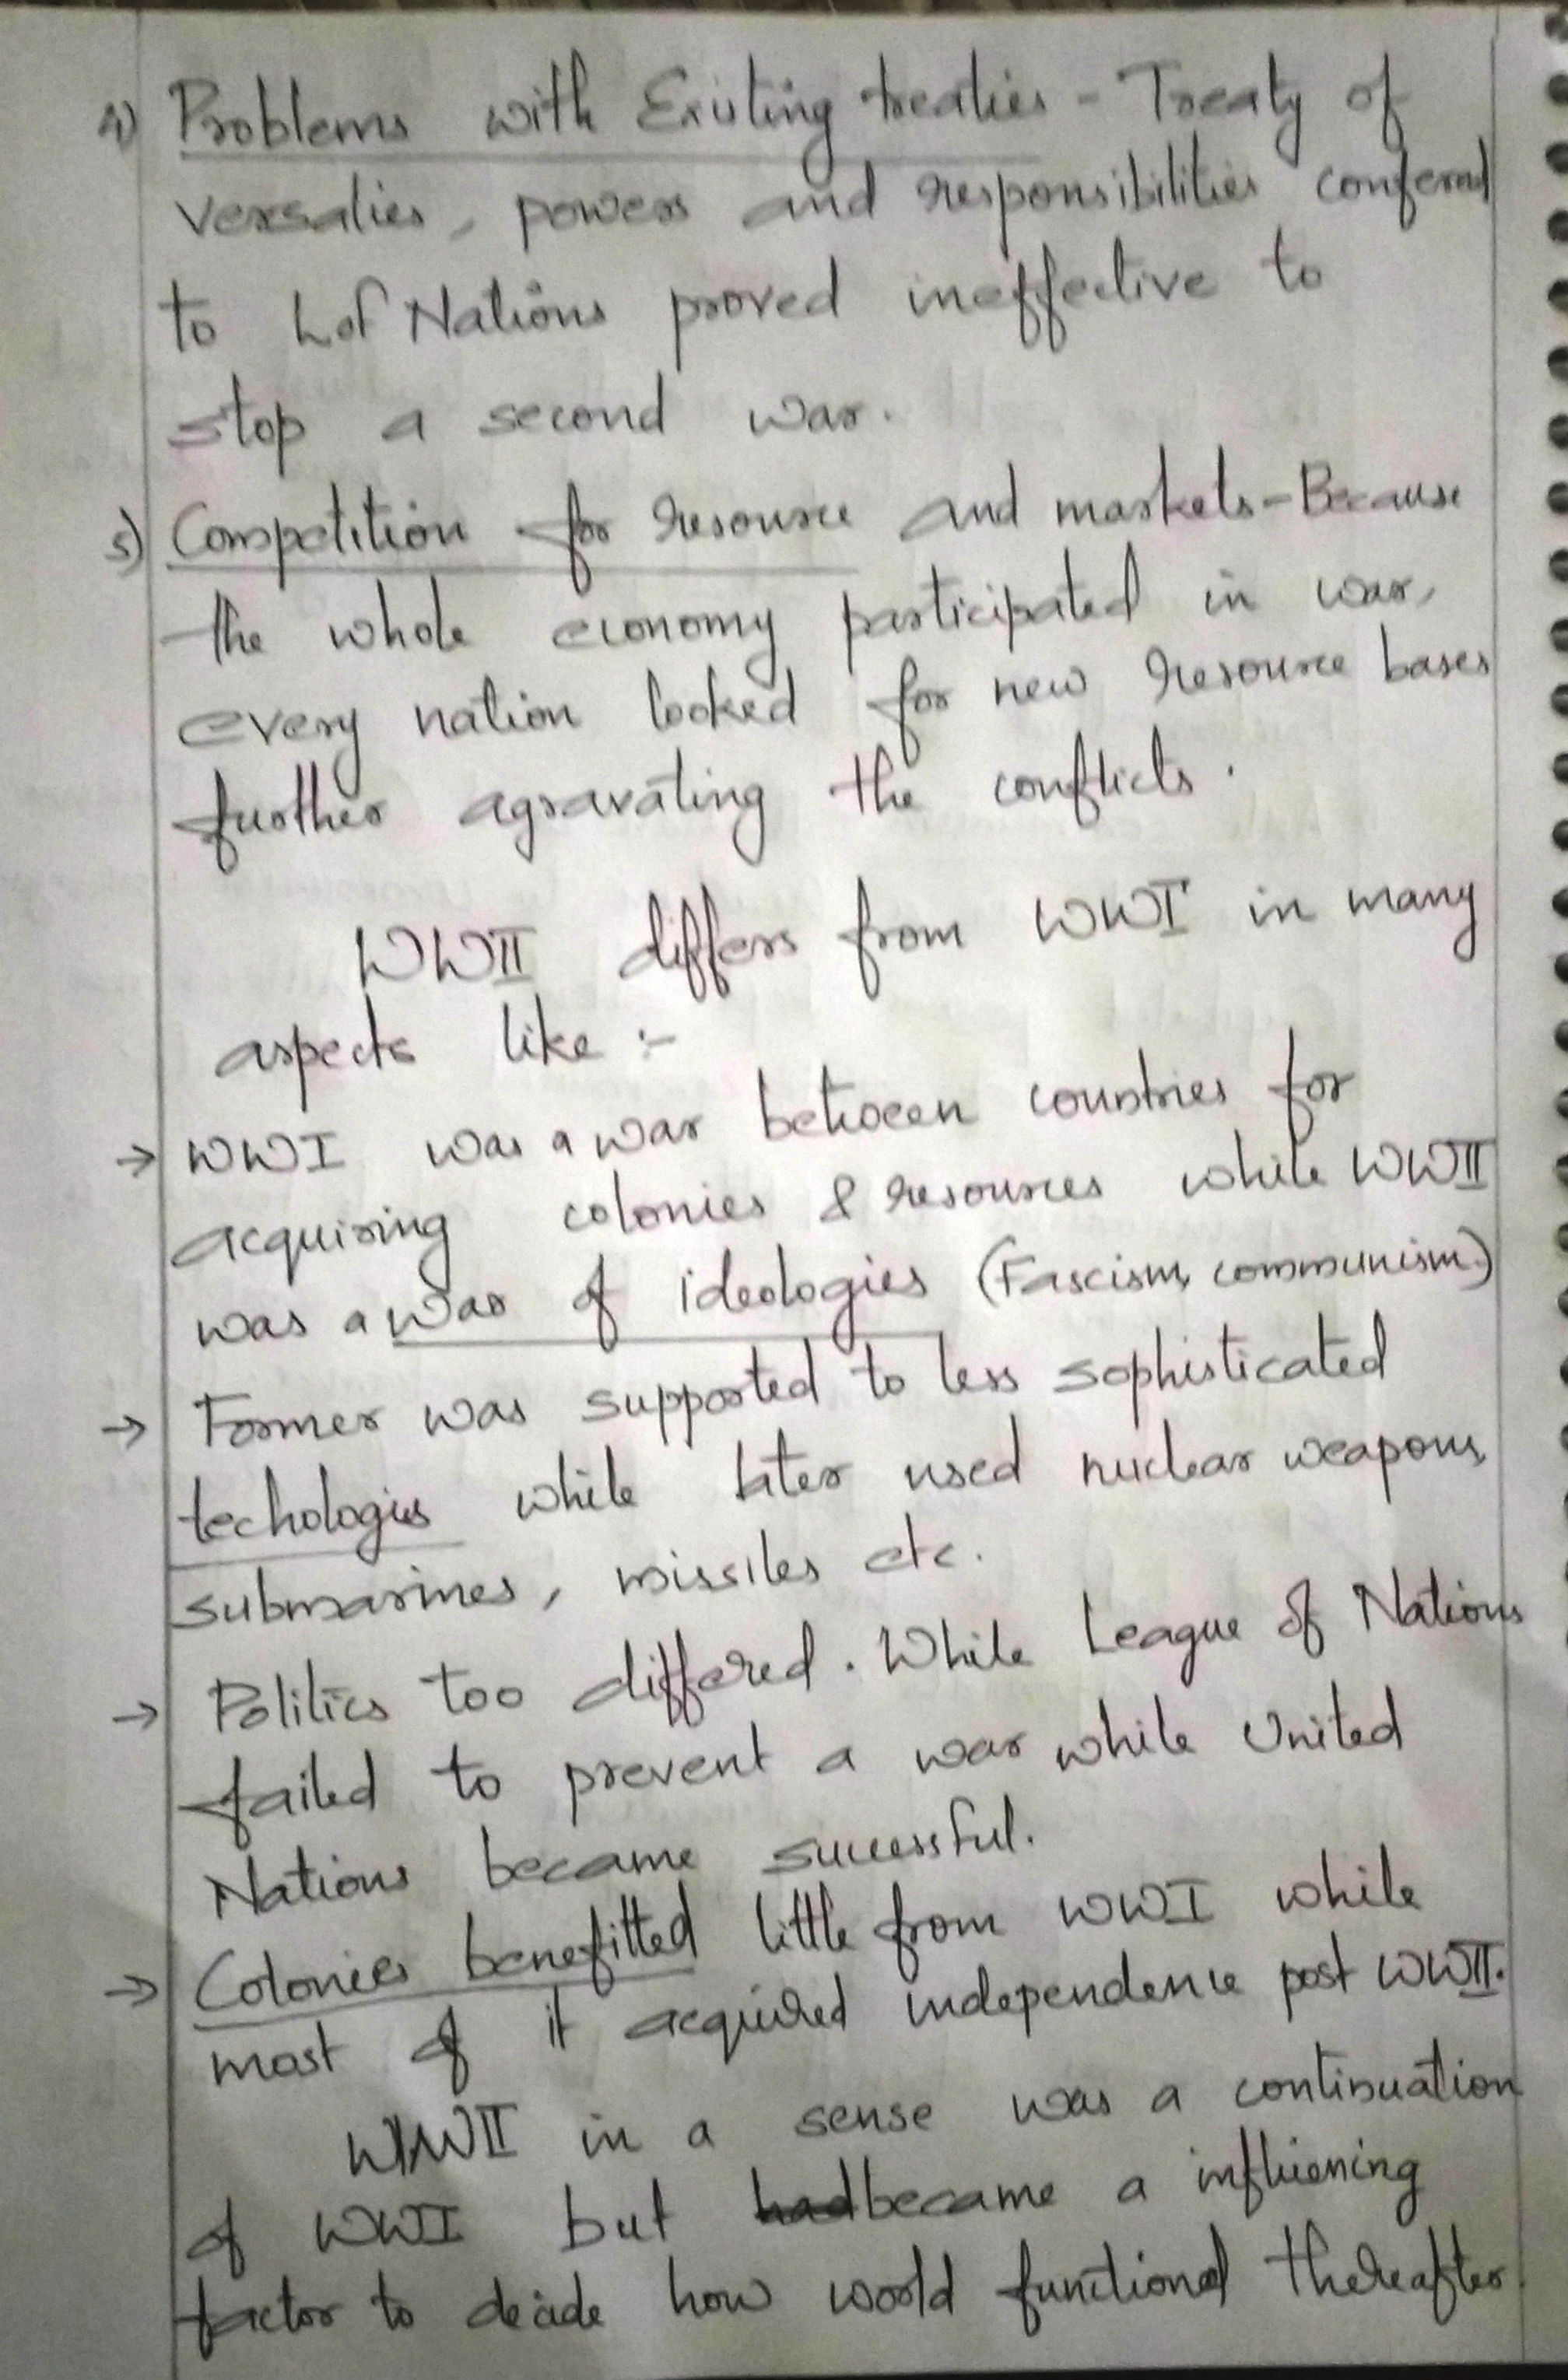 4) Problems with Existing treaties - Treaty of
versalies, powers and responsibilities confered
to L of Nations proved ineffective to
stop a second war.
5) Competition for resource and markets - Because
the whole economy participated in war,
every nation looked for new resource bases
further agravating the conflicts.
WWII differs from WWI in many
aspects like :-
→ WWI was a war between countries for
acquiring colonies & resources while WWII
was a war of ideologies (Fascism, communism)
→ Former was supported to less sophisticated
techologies while later used nuclear weapons,
submarines, missiles etc.
→ Politics too differed. While League of Nations
failed to prevent a war while United
Nations became successful.
→ Colonies benefitted little from WWI while
most of it acquired independence post WWII.
WWII in a sense was a continuation
of WWI but had became a influening
factor to decide how world functioned thereafter.